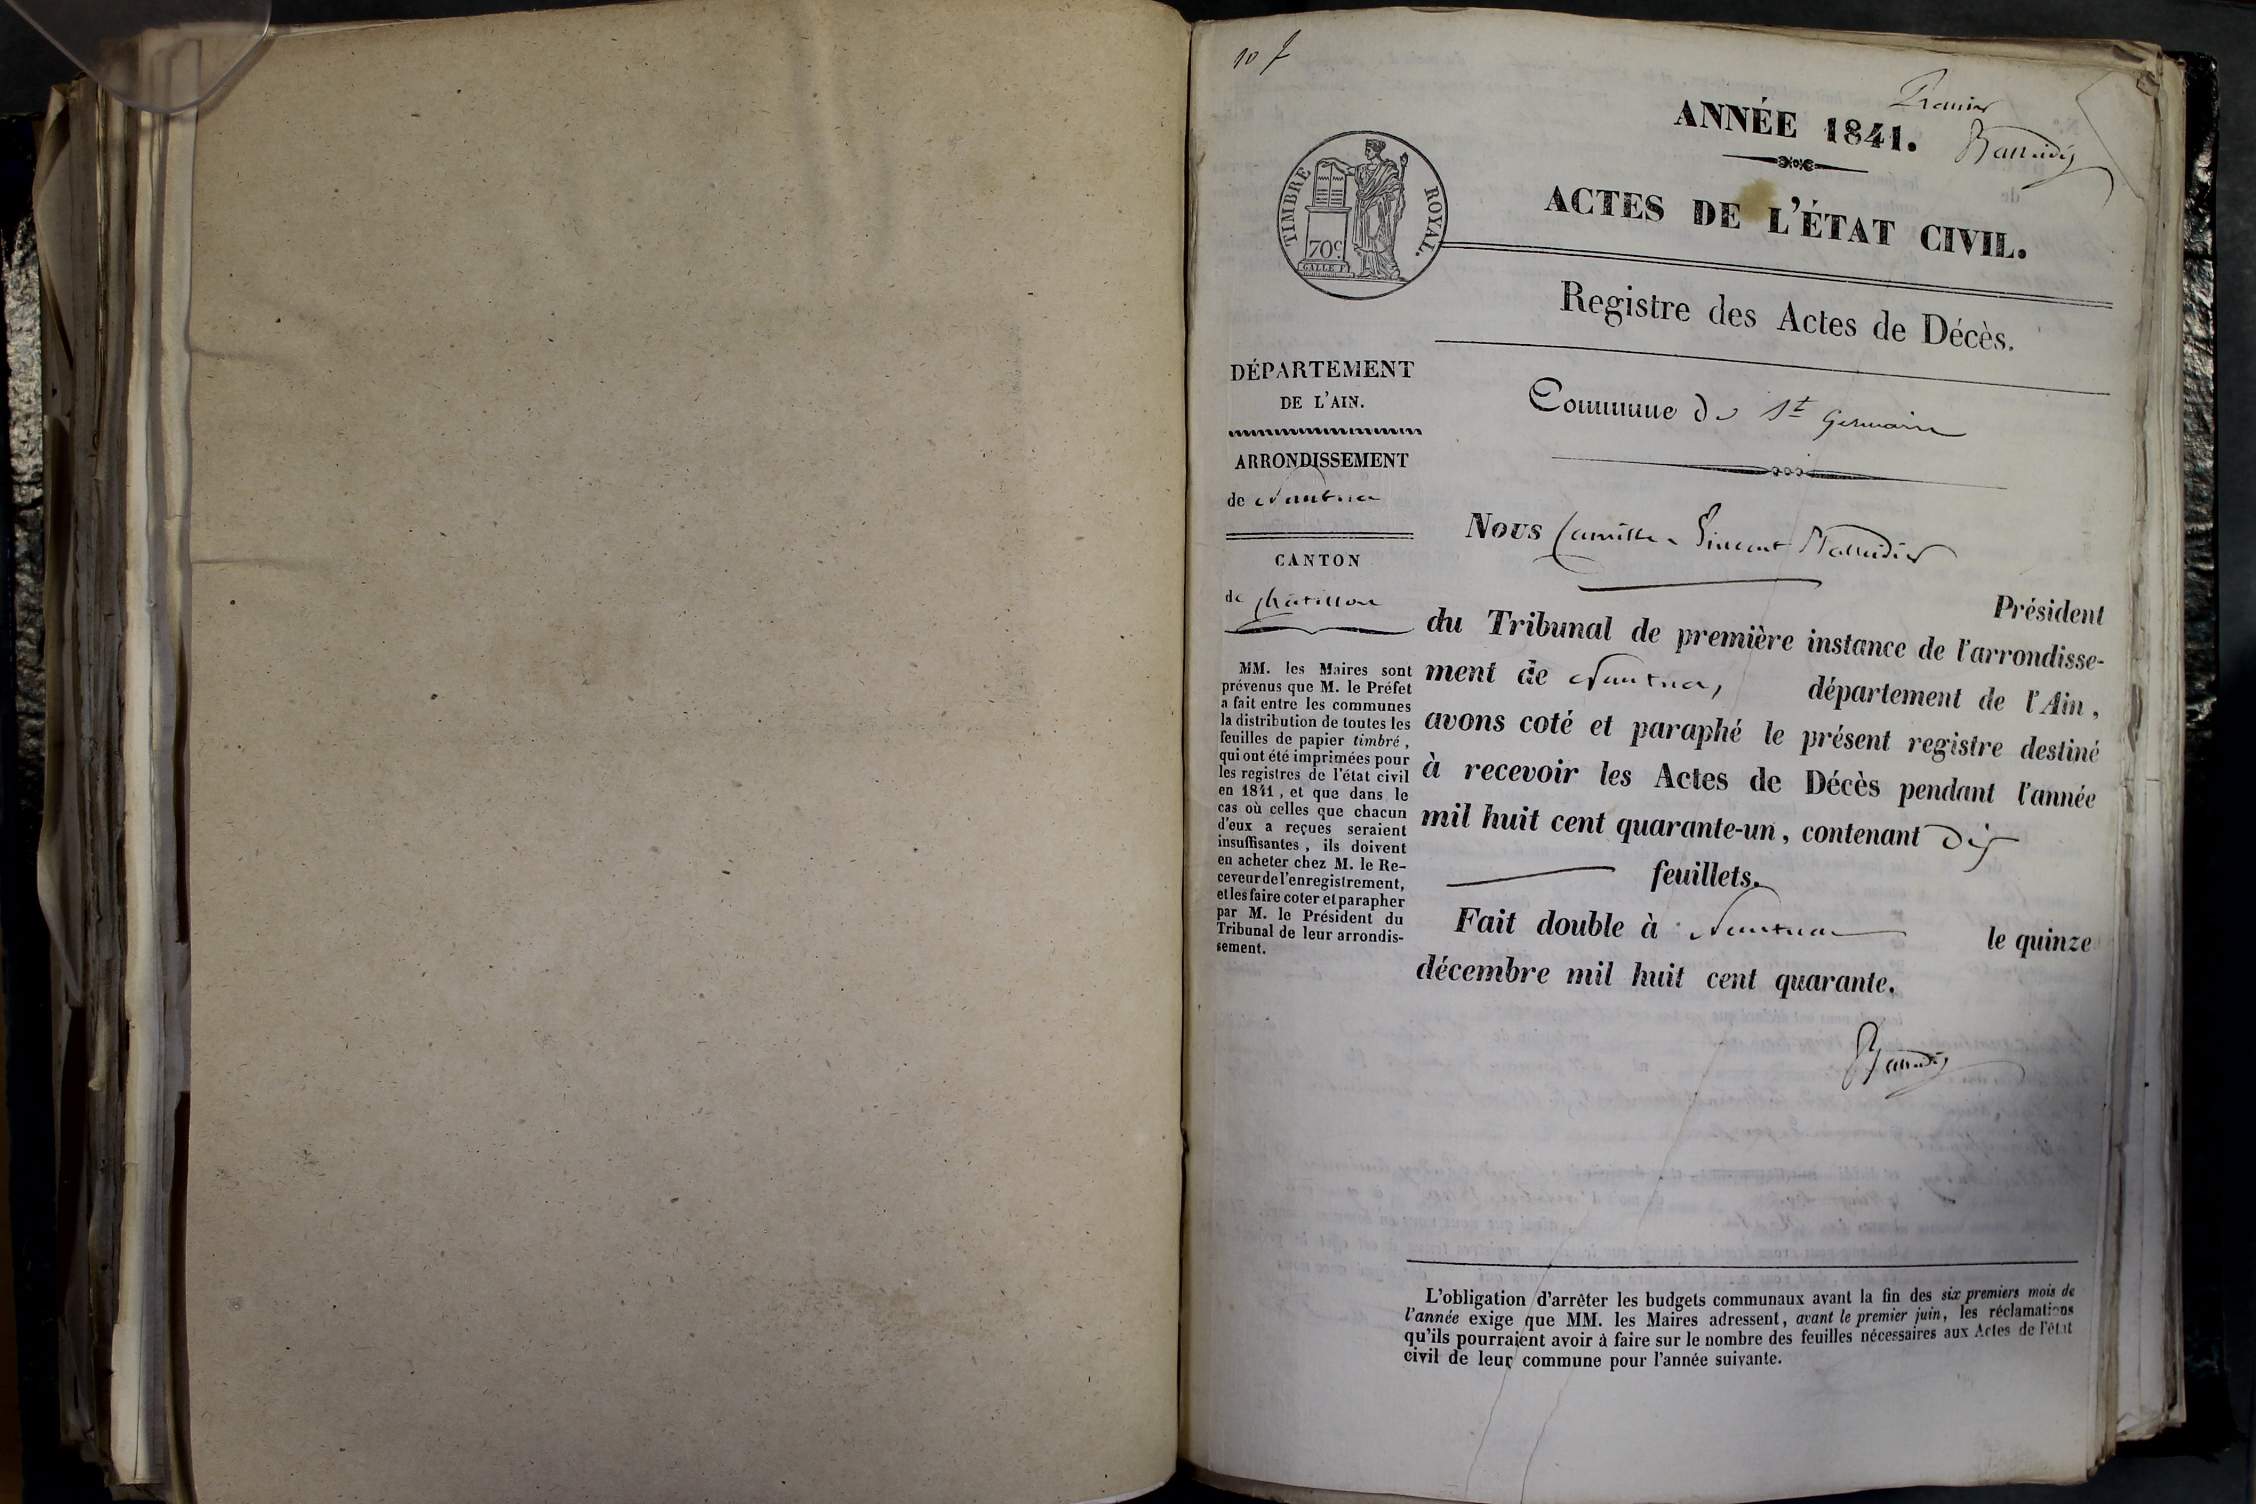 10 f
Premier
ANNÉE 1841.
ACTES DE L'ÉTAT CIVIL.
TIMBRE ROYAL.
70c.
GALLE F.
Registre des Actes de Décès.
Commune de St Germain
DÉPARTEMENT
DE L'AIN.
ARRONDISSEMENT
de Nantua
CANTON
de Châtillon
MM. les Maires sont
prévenus que M. le Préfet
a fait entre les communes
la distribution de toutes les
feuilles de papier timbré,
qui ont été imprimées pour
les registres de l'état civil
en 1841, et que dans le
cas où celles que chacun
d'eux a reçues seraient
insuffisantes, ils doivent
en acheter chez M. le Re-
ceveur de l'enregistrement,
et les faire coter et parapher
par M. le Président du
Tribunal de leur arrondis-
sement.
Nous Camille Vincent
Président
du Tribunal de première instance de l'arrondisse-
ment de Nantua, département de l'Ain,
avons coté et paraphé le présent registre destiné
à recevoir les Actes de Décès pendant l'année
mil huit cent quarante-un, contenant dix
feuillets.
Fait double à Nantua le quinze
décembre mil huit cent quarante.
L'obligation d'arrêter les budgets communaux avant la fin des six premiers mois de
l'année exige que MM. les Maires adressent, avant le premier juin, les réclamations
qu'ils pourraient avoir à faire sur le nombre des feuilles nécessaires aux Actes de l'état
civil de leur commune pour l'année suivante.